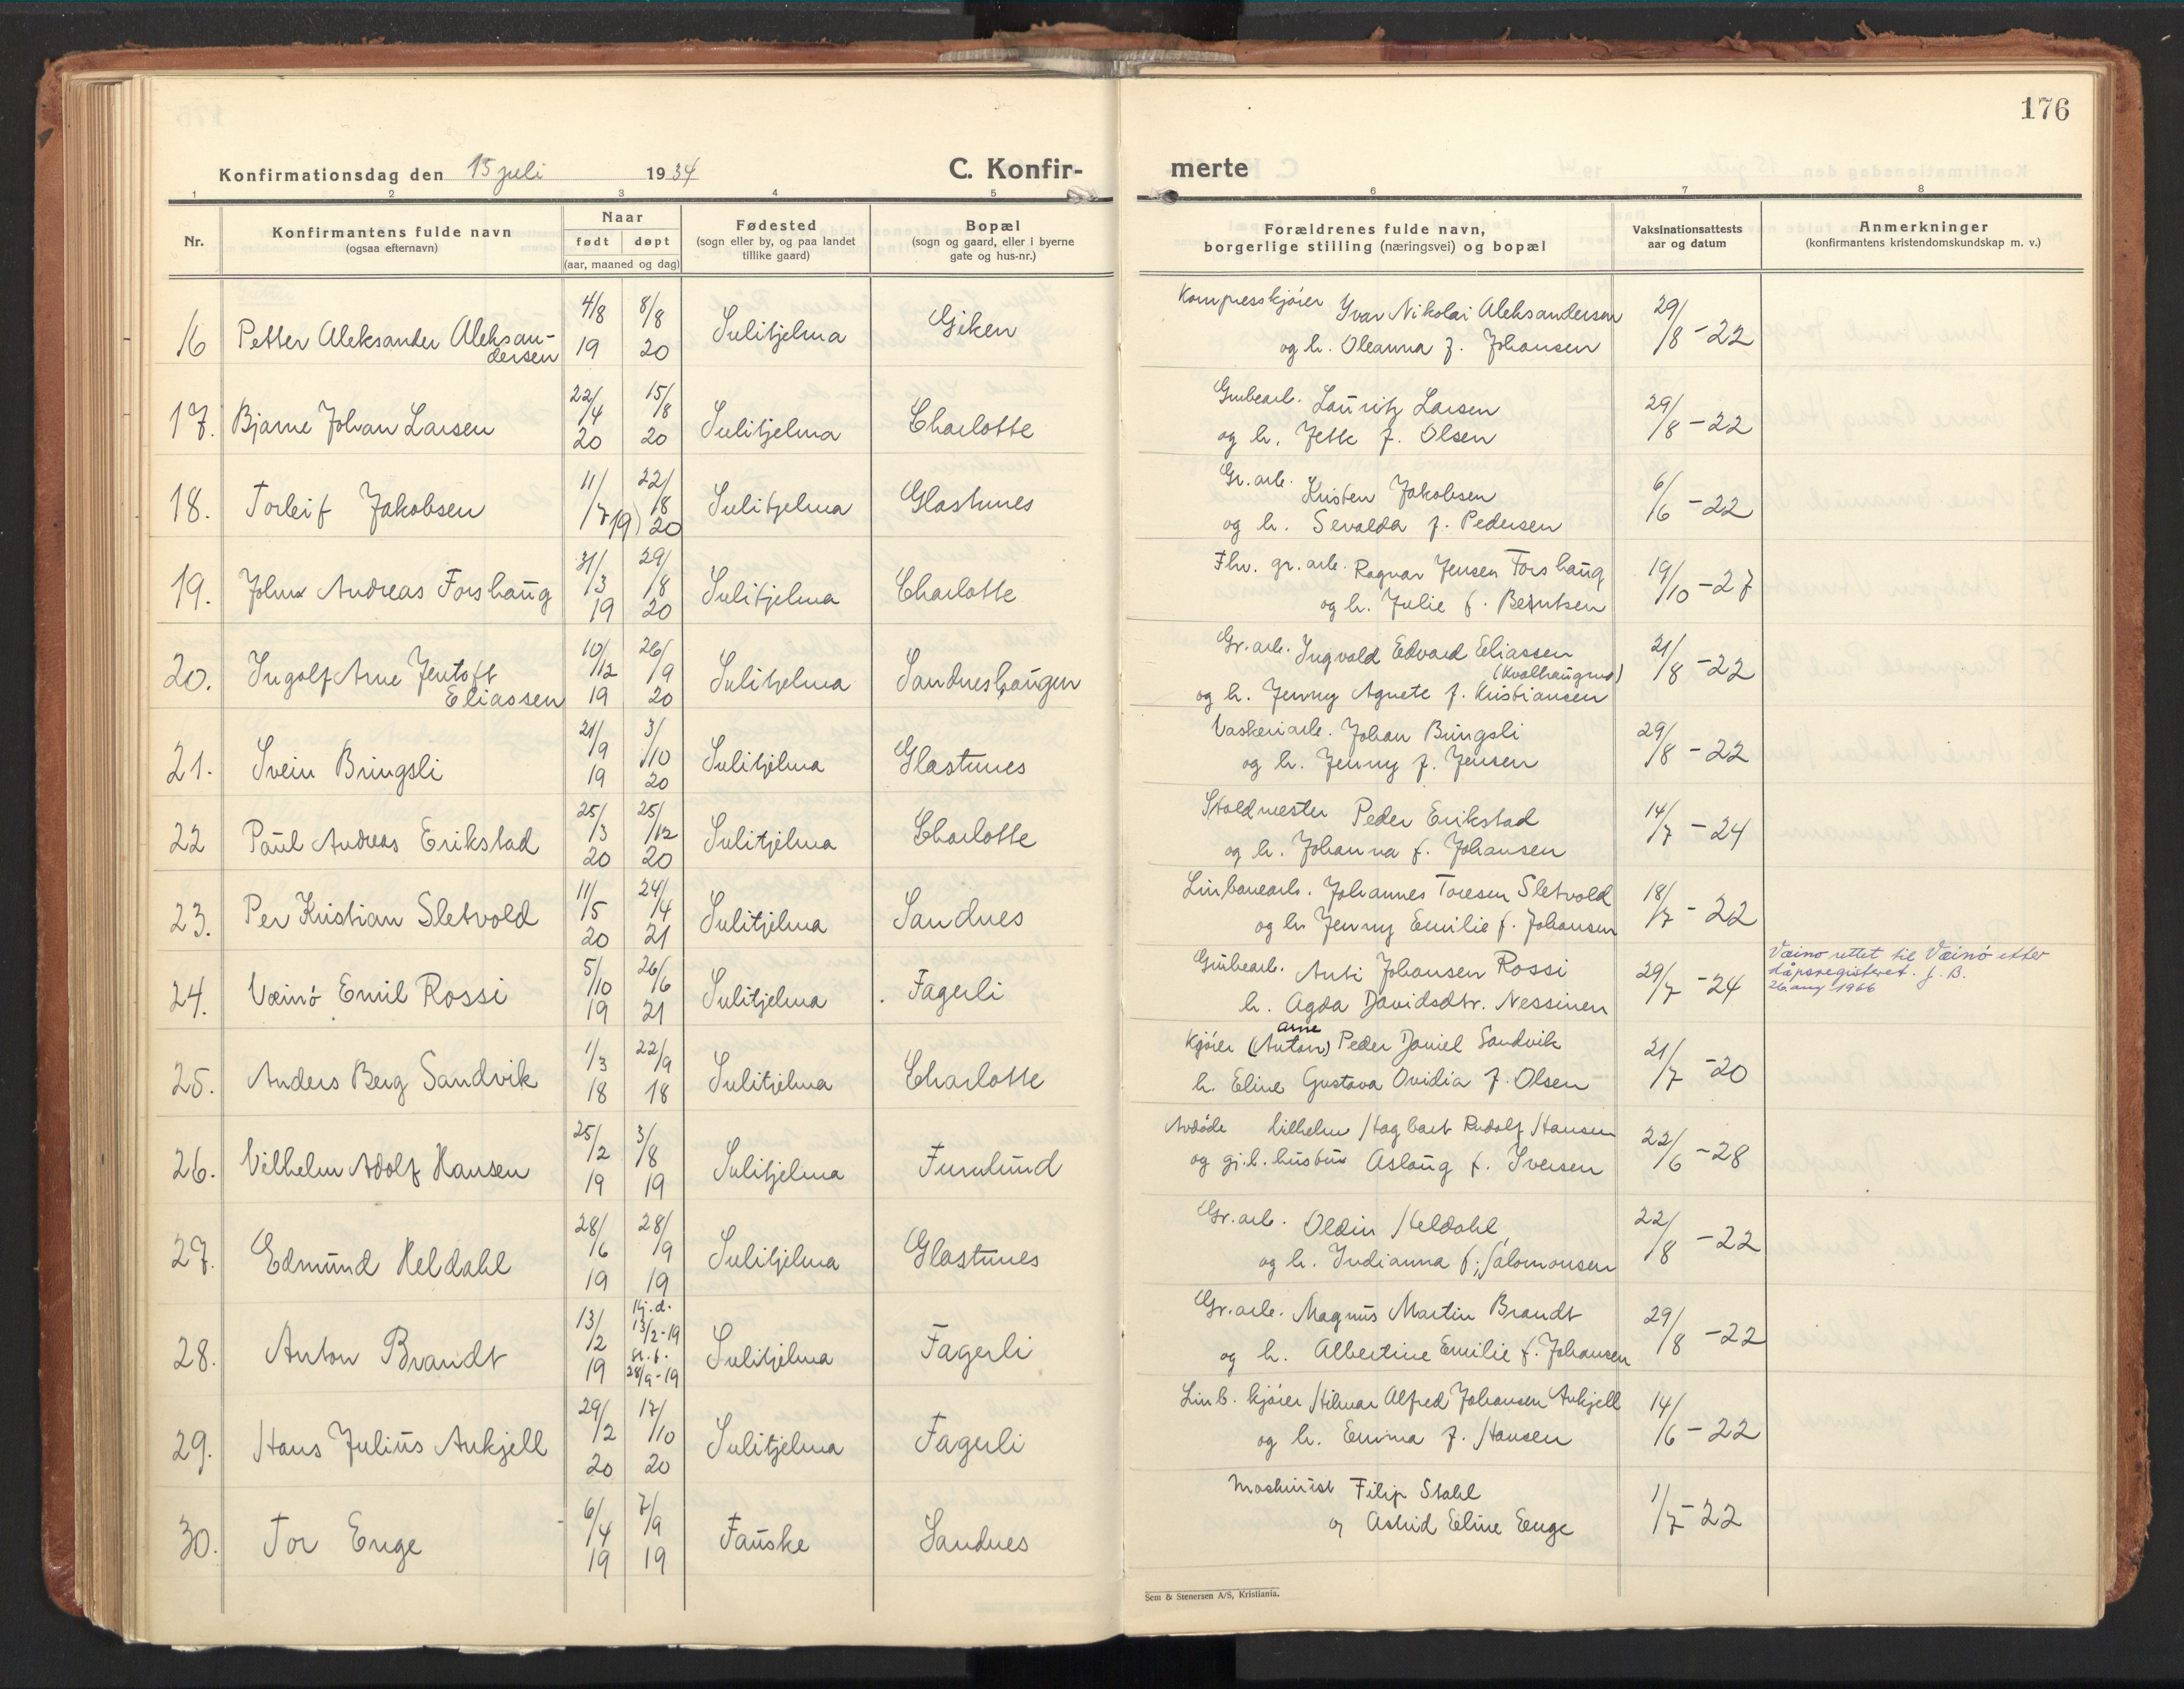 176
Konfirmationsdag den 15 juli 1934 C. Konfir- merte
1 2 3 4 5 6 7 8
Nr. Konfirmantens fulde navn (ogsaa efternavn) Naar født døpt (aar, maaned og dag) Fødested (sogn eller by, og paa landet tillike gaard) Bopæl (sogn og gaard, eller i byerne gate og hus-nr.) Forældrenes fulde navn, borgerlige stilling (næringsvei) og bopæl Vaksinationsattests aar og datum Anmerkninger (konfirmantens kristendomskundskap m. v.)
16 Petter Aleksander Aleksan-dersen 4/8 19 8/8 20 Sulitjelma Giken Kompresskjører Ivar Nikolai Aleksandersen 29/8-22
og h. Oleanna f. Johansen
17. Bjarne Johan Larsen 22/4 20 15/8 20 Sulitjelma Charlotte Grubearb. Lauritz Larsen 29/8-22
og h. Jette f. Olsen
18. Torleif Jakobsen 11/7 19) 22/8 20 Sulitjelma Glastunes Gr. arb. Kristen Jakobsen 6/6-22
og h. Sevalda f. Pedersen
19. Johnx Andreas Forshaug 31/3 19 29/8 20 Sulitjelma Charlotte Fhv. gr. arb. Ragnar Jensen Forshaug 19/10-27
og h. Julie f. Berntsen
20. Ingolf Arne Jentoft Eliassen 10/12 19 26/9 20 Sulitjelma Sandneshaugen Gr. arb. Ingvald Edvard Eliassen 21/8-22
og h. Jenny Agnete f. Kristiansen
21. Svein Bringsli 21/9 19 3/10 20 Sulitjelma Glastunes Vaskeriarb. Johan Bringsli 29/8-22
og h. Jenny f. Jensen
22 Paul Andreas Erikstad 25/3 20 25/12 20 Sulitjelma Charlotte Stoldmester Peder Erikstad 14/7-24
og h. Johanna f. Johansen
23. Per Kristian Sletvold 11/5 20 24/4 21 Sulitjelma Sandnes Linbanearb. Johannes Toresen Sletvold 18/7-22
og h. Jenny Emilie f. Johansen
24. Væinö Emil Rossi 5/10 19 26/6 21 Sulitjelma Fagerli Grubearb. Anti Johansen Rossi 29/7-24 Væino rettet til Væinö etter
h. Agda Davidsdtr. Nessinen dåpsregisteret. J. B.
26 aug 1966
25. Anders Berg Sandvik 1/3 18 22/9 18 Sulitjelma Charlotte Kjører (Anton) Arne Peder Daniel Sandvik 21/7-20
h. Eline Gustava Ovidia f. Olsen
26. Vilhelm Adolf Hansen 25/2 19 3/8 19 Sulitjelma Furulund Avdøde Vilhelm Hagbart Rudolf Hansen 22/6-28
og gj.l. hustru Aslaug f. Iversen
27. Edmund Heldahl 28/6 19 28/9 19 Sulitjelma Glastunes Gr. arb. Oldin Heldahl 22/8-22
og h. Indianna f. Salomonsen
28. Anton Brandt 13/2 19 Hj. d. 13/2-19 st. f. 28/9-19 Sulitjelma Fagerli Gr. arb. Magnus Martin Brandt 29/8-22
og h. Albertine Emilie f. Johansen
29. Hans Julius Ankjell 29/2 20 17/10 20 Sulitjelma Fagerli Linb. kjører Hilmar Alfred Johansen Ankjell 14/6-22
og h. Emma f. Hansen
30. Tor Enge 6/4 19 7/9 19 Fauske Sandnes Maskinist Filip Stahl 1/7-22
og Astrid Eline Enge
Sem & Stenersen A/S, Kristiania.